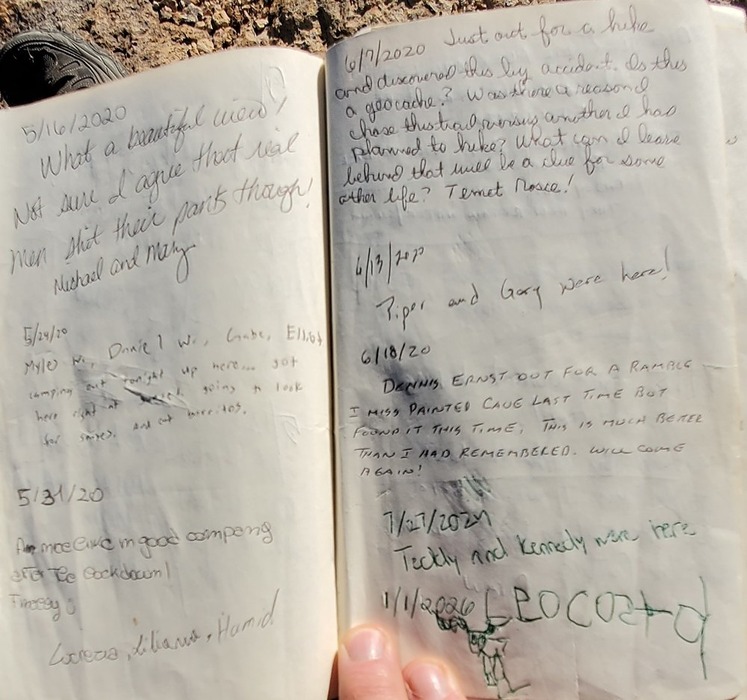 5/16/2020
What a beautiful view!
Not sure I agree that real
men shit their pants though!
Michael and Mary
5/24/20
Myles W., Daniel W., Gabe, Elliot
camping out tonight up here... got
here right at going to look
for smores. and eat burritos.
5/31/20
in good company
after the lockdown!
Lucrecia, Liliana, Hamid
6/7/2020 Just out for a hike
and discovered this by accident. Is this
a geocache? Was there a reason I
chose this trail versus another I had
planned to hike? What can I leave
behind that will be a clue for some
other life? Temet Nosce!
6/13/2020
Piper and Gary were here!
6/18/20
DENNIS ERNST OUT FOR A RAMBLE
I MISS PAINTED CAVE LAST TIME BUT
FOUND IT THIS TIME, THIS IS MUCH BETER
THAN I HAD REMEMBERED. WILL COME
AGAIN!
7/27/202
Teddy and Kennedy were here
1/1/2026